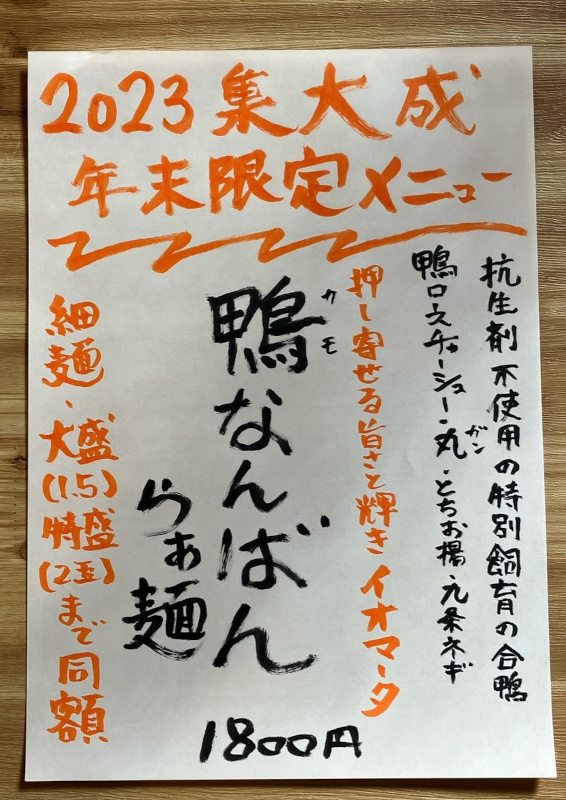 2023集大成
年末限定メニュー
抗生剤不使用の特別飼育の合鴨
鴨ロースチャーシュー・丸・とちお揚・九条ネギ
ガン
押し寄せる旨さと輝きイオマータ
鴨なんばん
カモ
らぁ麺
細麺、大盛(1.5)特盛(2玉)まで同額
1800円